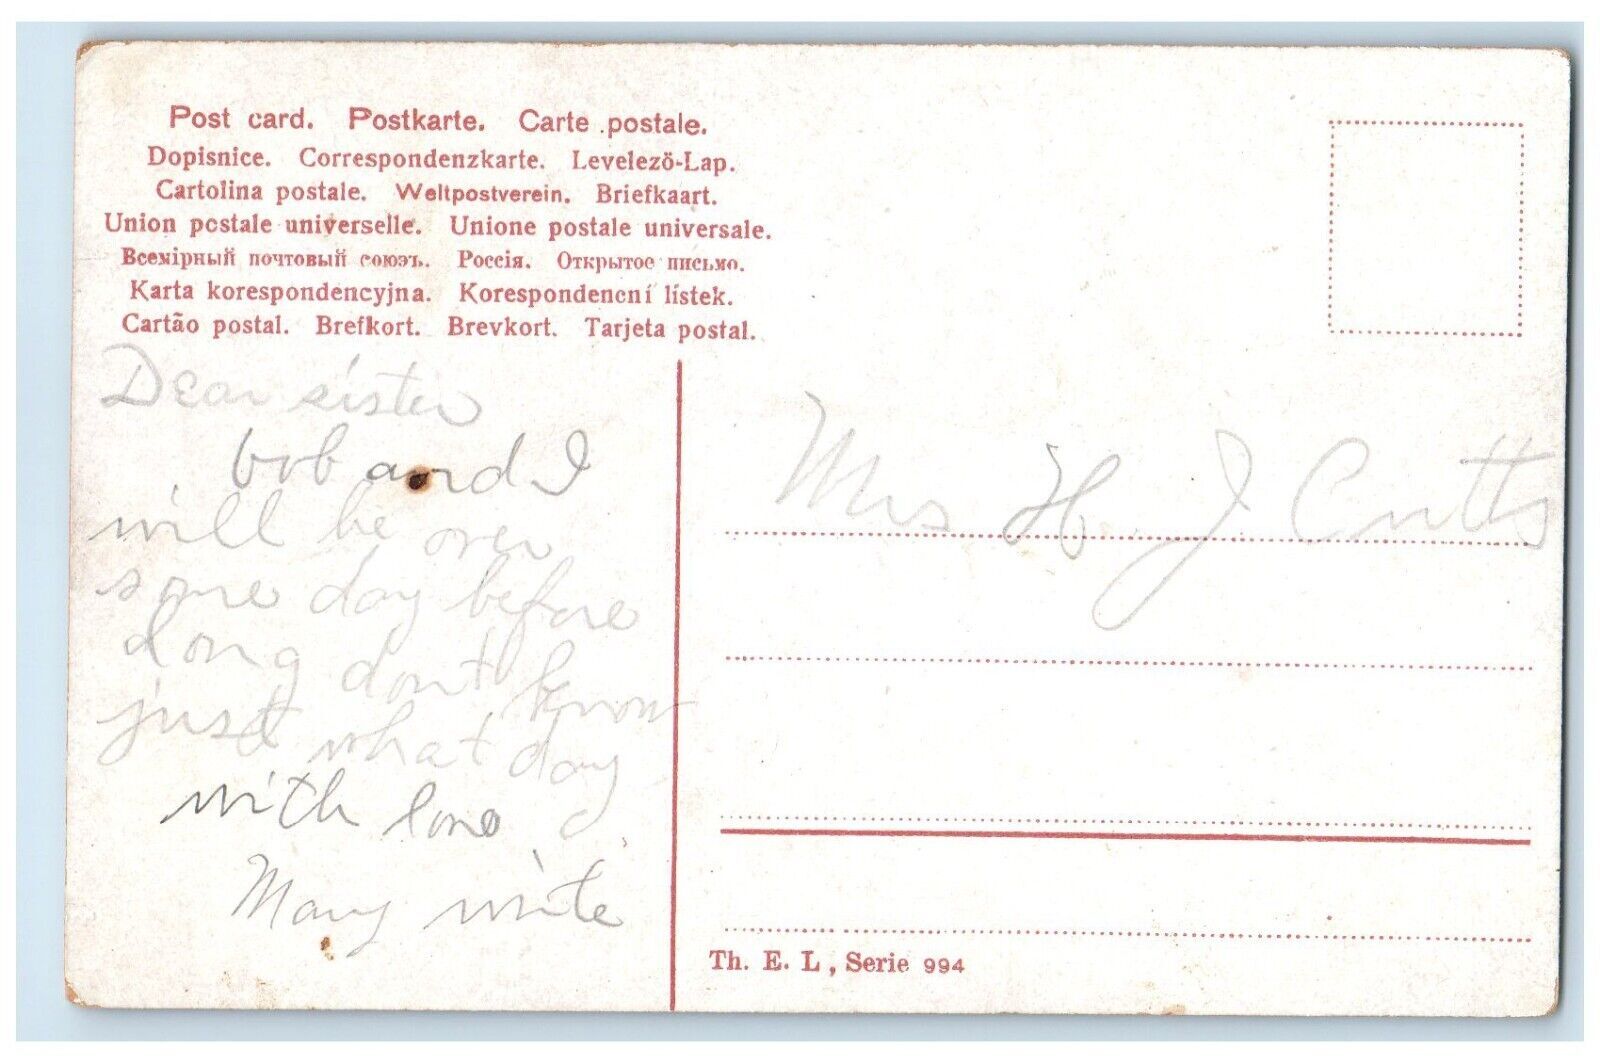 Post card. Postkarte. Carte postale.
Dopisnice. Correspondenzkarte. Levelező-Lap.
Cartolina postale. Weltpostverein. Briefkaart.
Union postale universelle. Unione postale universale.
Всемірный почтовый союзъ. Россія. Открытое письмо.
Karta korespondencyjna. Korespondencní lístek.
Cartão postal. Brefkort. Brevkort. Tarjeta postal.
Dear sister
bob and I
will be over
some day before
long dont know
just what day
with love
Mary write
Mrs H. J Cutts
Th. E. L, Serie 994